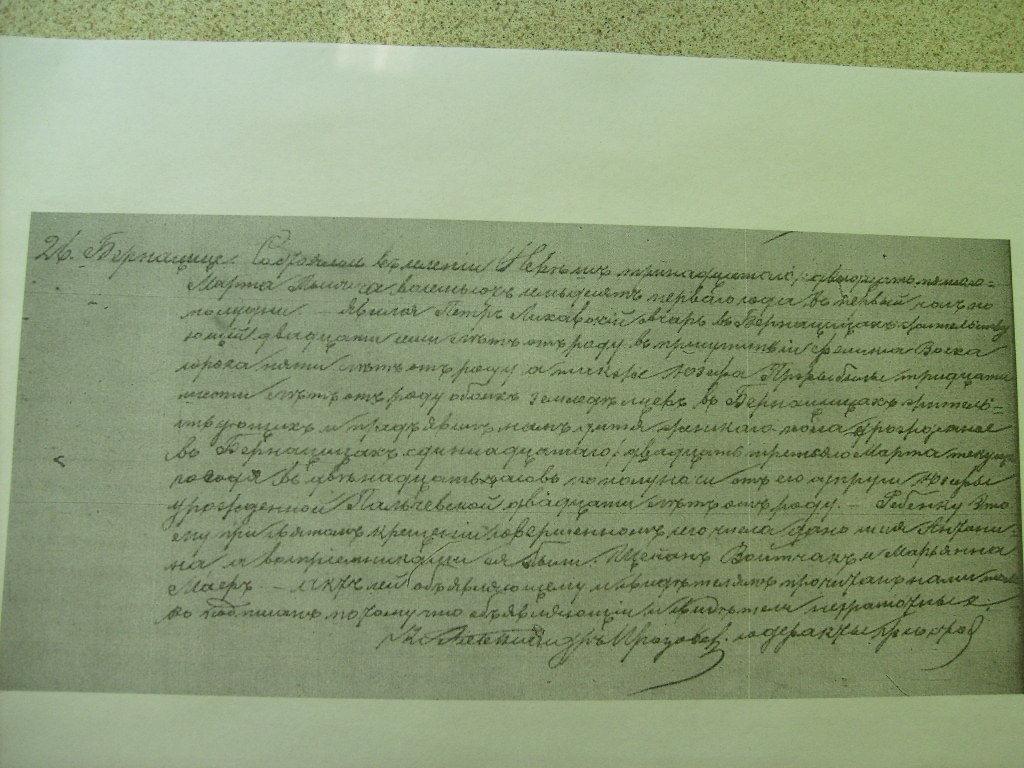 26. Бернацице. Состоялось въ селении тринадцатаго / двадцать пятаго
Марта Тысяча восемьсотъ семьдесятъ перваго года въ первый часъ по
полудни. — Явился Петръ овчарь въ Бернацицахъ жительству
ющий двадцати семи лѣтъ отъ роду въ присутствии Воска
сорока пяти лѣтъ отъ роду а также Юзефа тридцати
шести лѣтъ отъ роду обоихъ земледѣлцевъ въ Бернацицахъ житель=
ствующихъ и предъявилъ намъ дитя женскаго пола рожденное
въ Бернацицахъ одиннадцатаго / двадцать третьяго Марта текущаго
года въ двѣнадцать часовъ пополуночи отъ его супруги Юзефы
урожденной Пальчевской двадцати лѣтъ отъ роду. — Ребенку этому
при святомъ крещении совершенномъ сего числа дано имя Антони
на а восприемниками были Щепанъ Войтчакъ и Марьянна
Маеръ — Актъ сей объявляющему и свидѣтелямъ прочитанъ нами
подписанъ потому что объявляющий и свидѣтели неграмотные.
Кс. Александръ содержащий акты